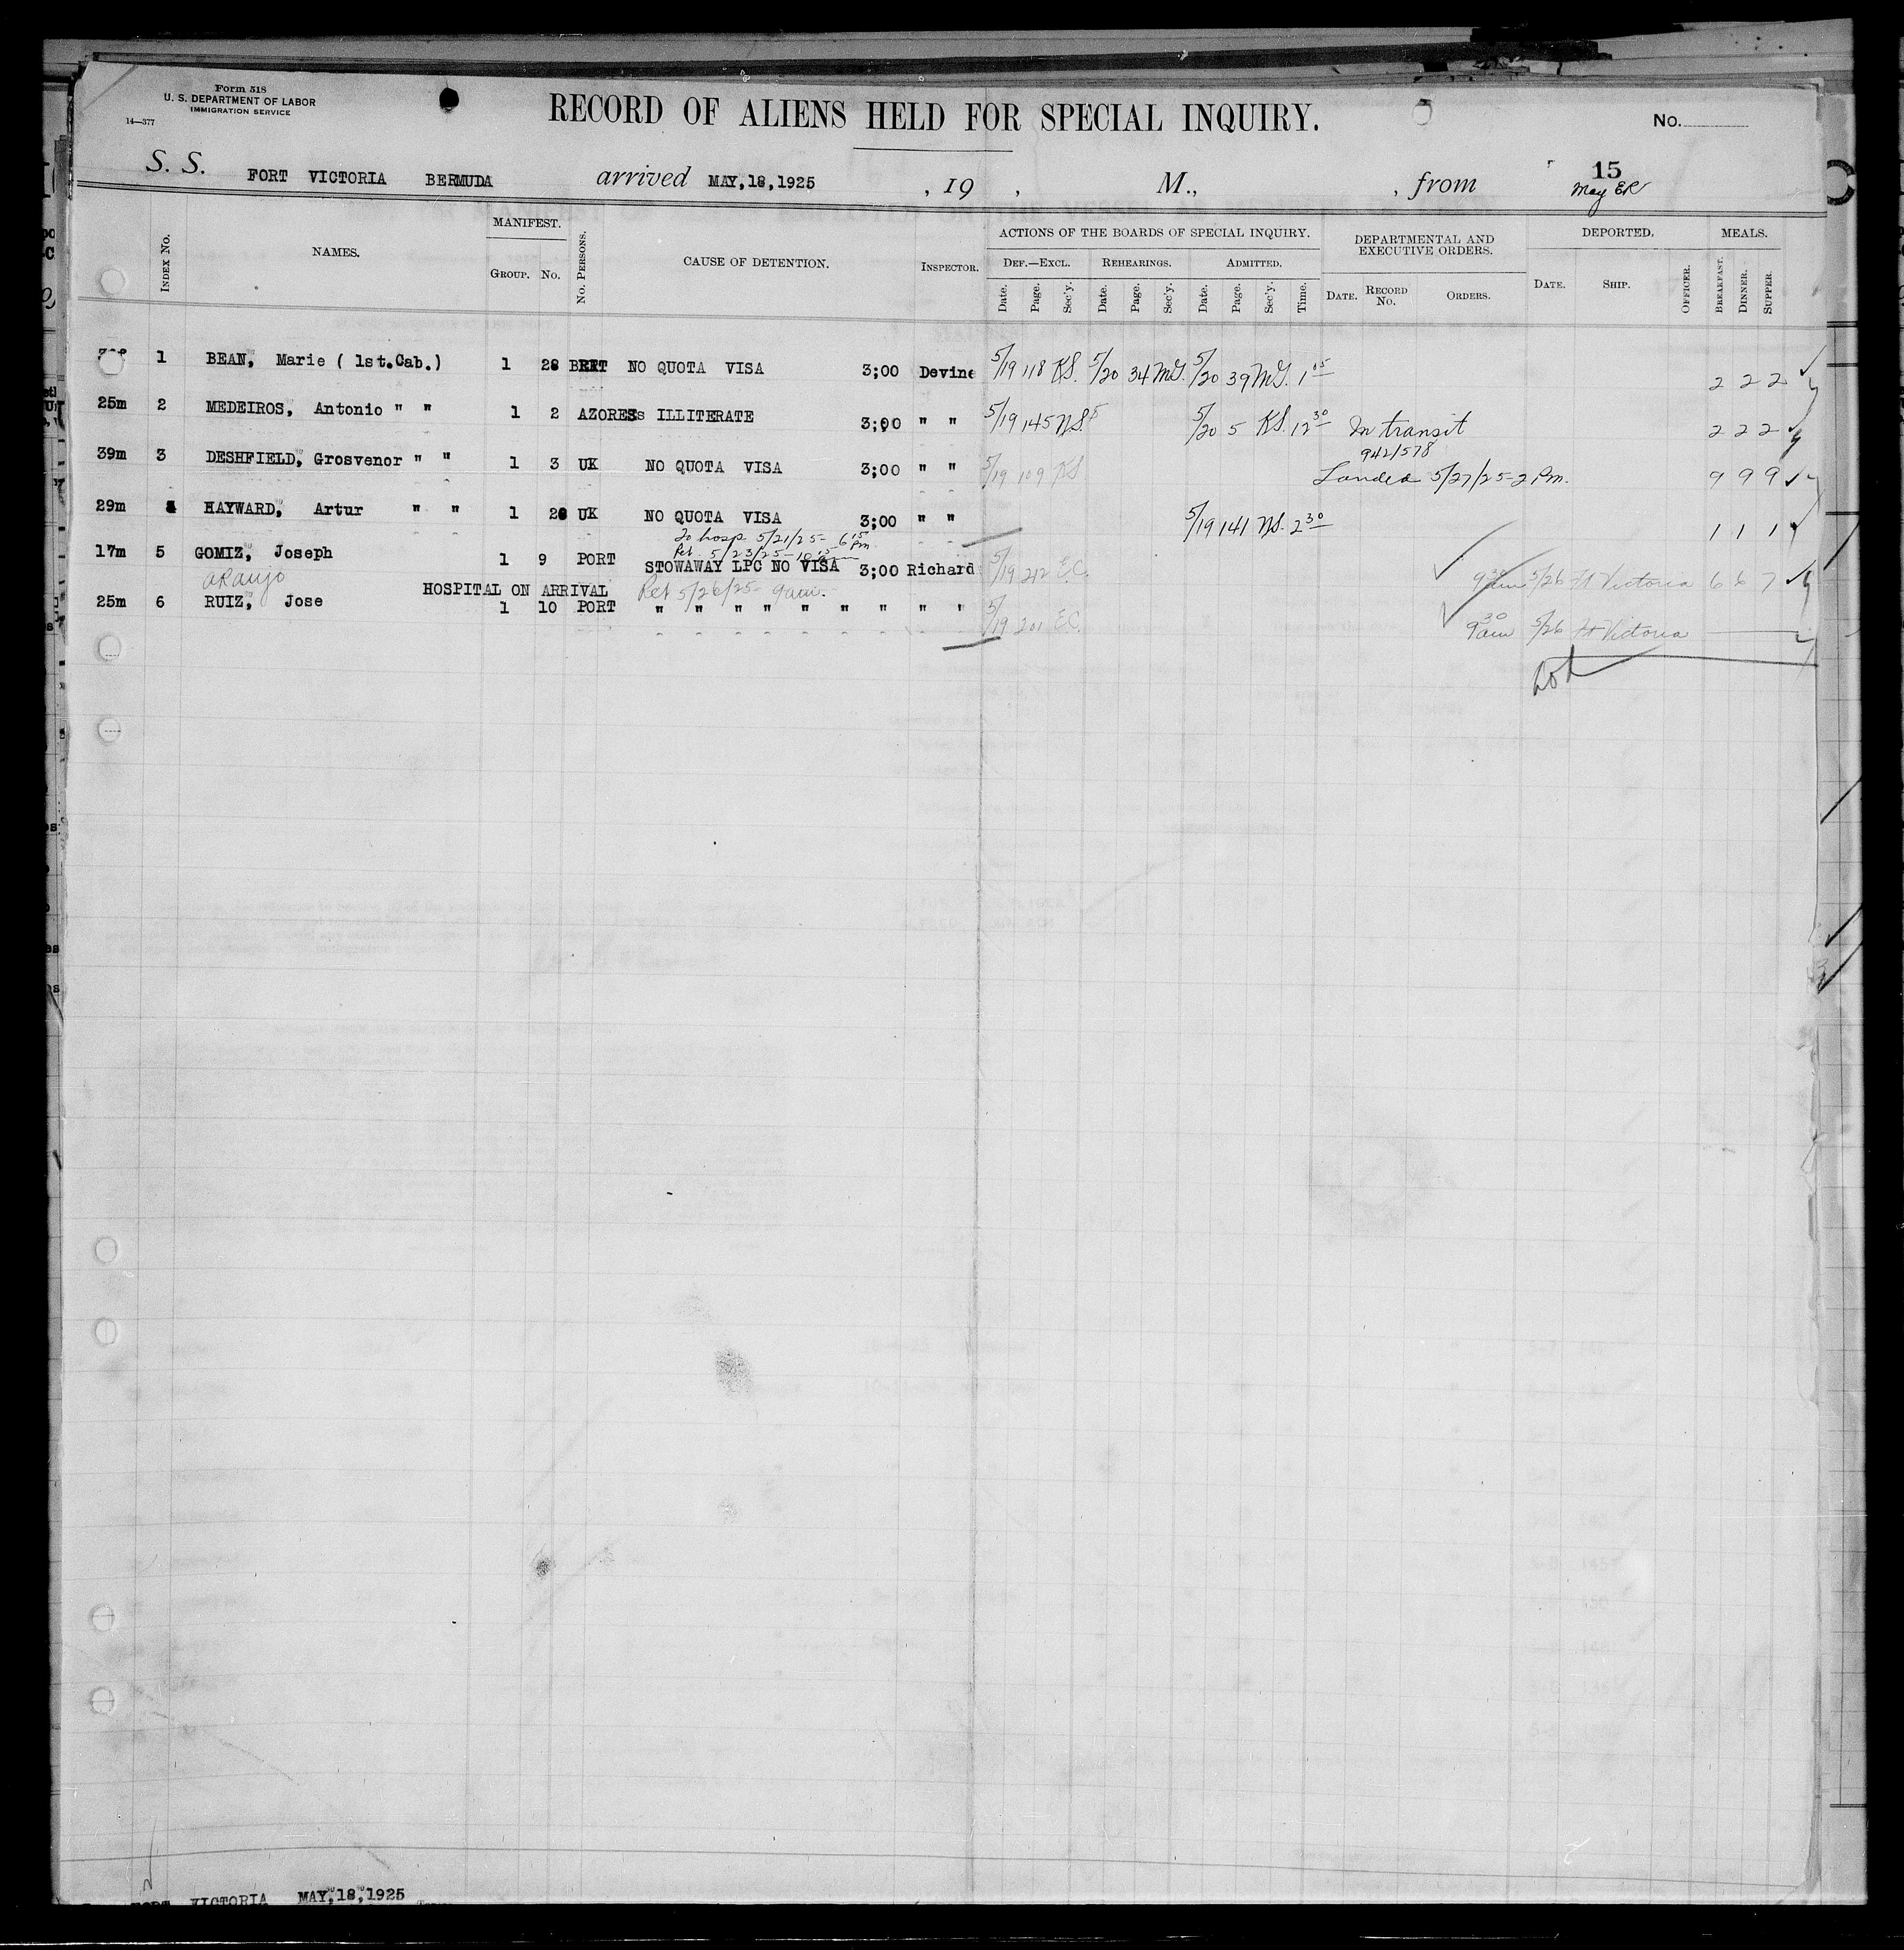 Form 518
U. S. DEPARTMENT OF LABOR
IMMIGRATION SERVICE
14—377
RECORD OF ALIENS HELD FOR SPECIAL INQUIRY.
No.
S. S. FORT VICTORIA BERMUDA arrived MAY,18,1925 , 19 , M., , from 15
May ER
Index No. NAMES. MANIFEST. Group. No. No. Persons. CAUSE OF DETENTION. Inspector. ACTIONS OF THE BOARDS OF SPECIAL INQUIRY. Def.—Excl. Date. Page. Sec'y. Rehearings. Date. Page. Sec'y. Admitted. Date. Page. Sec'y. Time. DEPARTMENTAL AND EXECUTIVE ORDERS. Date. Record No. Orders. DEPORTED. Date. Ship. Officer. MEALS. Breakfast. Dinner. Supper.
1 BEAN, Marie ( 1st.Cab.) 1 28 NO QUOTA VISA 3;00 Devine 5/19 118 KS. 5/20 34 MG. 5/20 39 MG. 1 15 2 2 2
25m 2 MEDEIROS, Antonio " " 1 2 AZORES ILLITERATE 3;00 " " 5/19 145 NS. 5/20 5 KS. 12 30 In transit 2 2 2
942/578
39m 3 DESHFIELD, Grosvenor " " 1 3 UK NO QUOTA VISA 3;00 " " 5/19 109 KS Landed 5/27/25-2 Pm. 9 9 9
29m HAYWARD, Artur " " 1 28 UK NO QUOTA VISA 3;00 " " 5/19 141 NS. 2 30 1 1 1
To hosp 5/21/25- 6 15 Pm
Ret. 5/23/25-10 15 am
17m 5 GOMIZ, Joseph 1 9 PORT STOWAWAY LPC NO VISA 3;00 Richard 5/19 212 E.C. 9 30 am 5/26 Ft Victoria 6 6 7
araujo
HOSPITAL ON ARRIVAL Ret 5/26/25- 9am.
25m 6 RUIZ, Jose 1 10 PORT " " " " " " " " " 5/19 201 E.C. 9 30 am 5/26 Ft Victoria
FORT VICTORIA MAY,18,1925